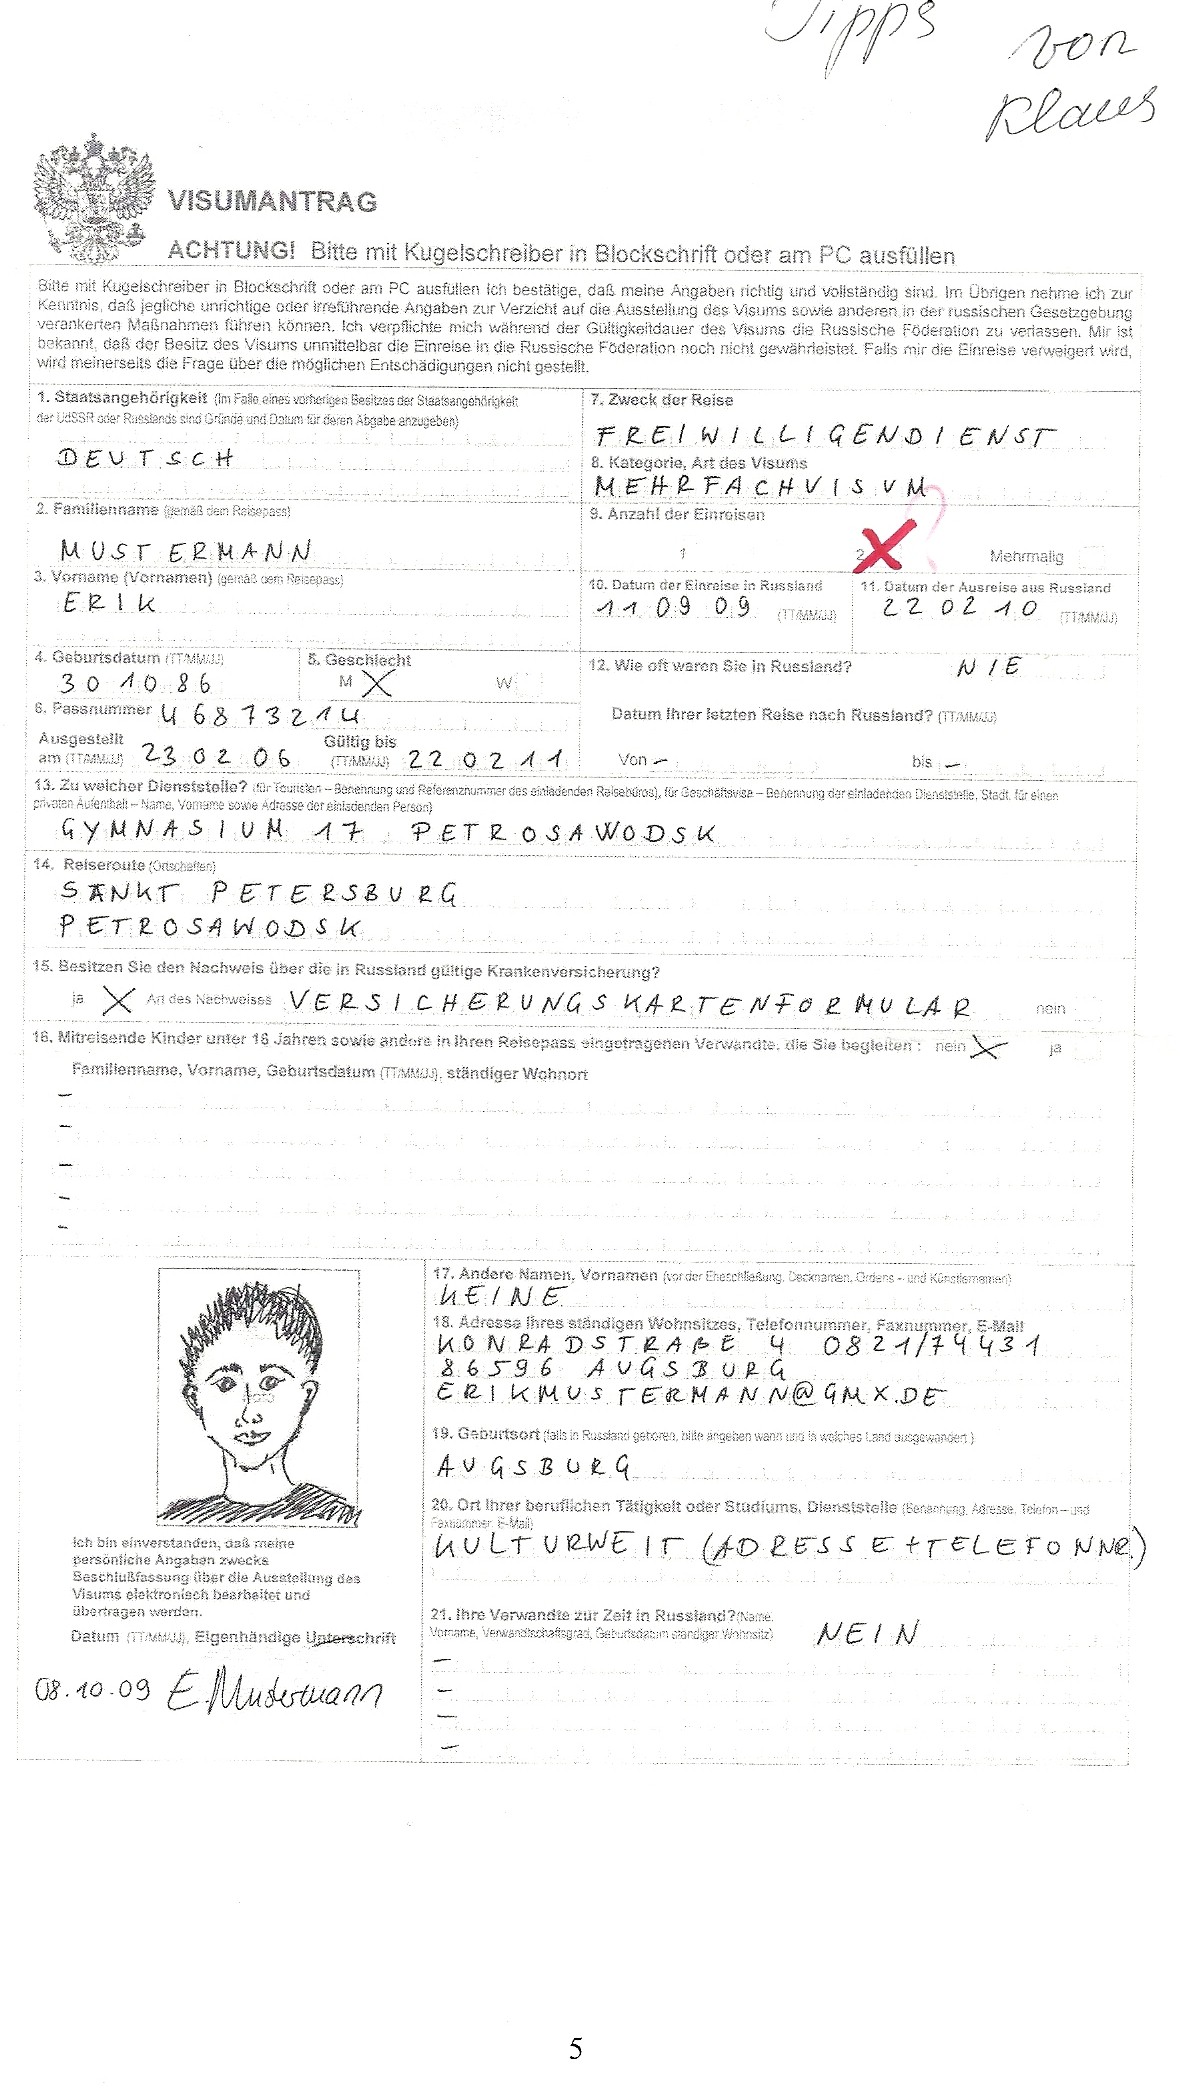 Tipps von
Klaus
VISUMANTRAG
ACHTUNG! Bitte mit Kugelschreiber in Blockschrift oder am PC ausfüllen
Bitte mit Kugelschreiber in Blockschrift oder am PC ausfüllen Ich bestätige, daß meine Angaben richtig und vollständig sind. Im Übrigen nehme ich zur
Kenntnis, daß jegliche unrichtige oder irreführende Angaben zur Verzicht auf die Ausstellung des Visums sowie anderen in der russischen Gesetzgebung
verankerten Maßnahmen führen können. Ich verpflichte mich während der Gültigkeitdauer des Visums die Russische Föderation zu verlassen. Mir ist
bekannt, daß der Besitz des Visums unmittelbar die Einreise in die Russische Föderation noch nicht gewährleistet. Falls mir die Einreise verweigert wird,
wird meinerseits die Frage über die möglichen Entschädigungen nicht gestellt.
1. Staatsangehörigkeit (Im Falle eines vorherigen Besitzes der Staatsangehörigkeit
der UdSSR oder Russlands sind Gründe und Datum für deren Abgabe anzugeben)
DEUTSCH
2. Familienname (gemäß dem Reisepass)
MUSTERMANN
3. Vorname (Vornamen) (gemäß dem Reisepass)
ERIK
4. Geburtsdatum (TT/MM/JJ)
30 10 86
5. Geschlecht
M X W
6. Passnummer 46873214
Ausgestellt
am (TT/MM/JJ) 23 02 06
Gültig bis
(TT/MM/JJ) 22 02 11
7. Zweck der Reise
FREIWILLIGENDIENST
8. Kategorie, Art des Visums
MEHRFACHVISUM
9. Anzahl der Einreisen
1 2 X ? Mehrmalig
10. Datum der Einreise in Russland
11 09 09 (TT/MM/JJ)
11. Datum der Ausreise aus Russland
22 02 10 (TT/MM/JJ)
12. Wie oft waren Sie in Russland? NIE
Datum Ihrer letzten Reise nach Russland? (TT/MM/JJ)
Von – bis –
13. Zu welcher Dienststelle? (für Touristen – Benennung und Referenznummer des einladenden Reisebüros), für Geschäftsvisa – Benennung der einladenden Dienststelle, Stadt, für einen
privaten Aufenthalt – Name, Vorname sowie Adresse der einladenden Person)
GYMNASIUM 17 PETROSAWODSK
14. Reiseroute (Ortschaften)
SANKT PETERSBURG
PETROSAWODSK
15. Besitzen Sie den Nachweis über die in Russland gültige Krankenversicherung?
ja X Art des Nachweises VERSICHERUNGSKARTENFORMULAR nein
16. Mitreisende Kinder unter 16 Jahren sowie andere in Ihren Reisepass eingetragenen Verwandte, die Sie begleiten : nein X ja
Familienname, Vorname, Geburtsdatum (TT/MM/JJ), ständiger Wohnort
–
–
–
–
–
Ich bin einverstanden, daß meine
persönliche Angaben zwecks
Beschlußfassung über die Ausstellung des
Visums elektronisch bearbeitet und
übertragen werden.
Datum (TT/MM/JJ), Eigenhändige Unterschrift
08.10.09 E. Mustermann
17. Andere Namen, Vornamen (vor der Eheschließung, Decknamen, Ordens – und Künstlernamen)
KEINE
18. Adresse Ihres ständigen Wohnsitzes, Telefonnummer, Faxnummer, E-Mail
KONRADSTRAßE 4 0821/74431
86596 AUGSBURG
ERIKMUSTERMANN@GMX.DE
19. Geburtsort (falls in Russland geboren, bitte angeben wann und in welches Land ausgewandert )
AUGSBURG
20. Ort Ihrer beruflichen Tätigkeit oder Studiums, Dienststelle (Benennung, Adresse, Telefon – und
Faxnummer, E-Mail)
KULTURWEIT (ADRESSE+TELEFONNR.)
21. Ihre Verwandte zur Zeit in Russland? (Name,
Vorname, Verwandschaftsgrad, Geburtsdatum ständiger Wohnsitz) NEIN
–
–
–
–
5